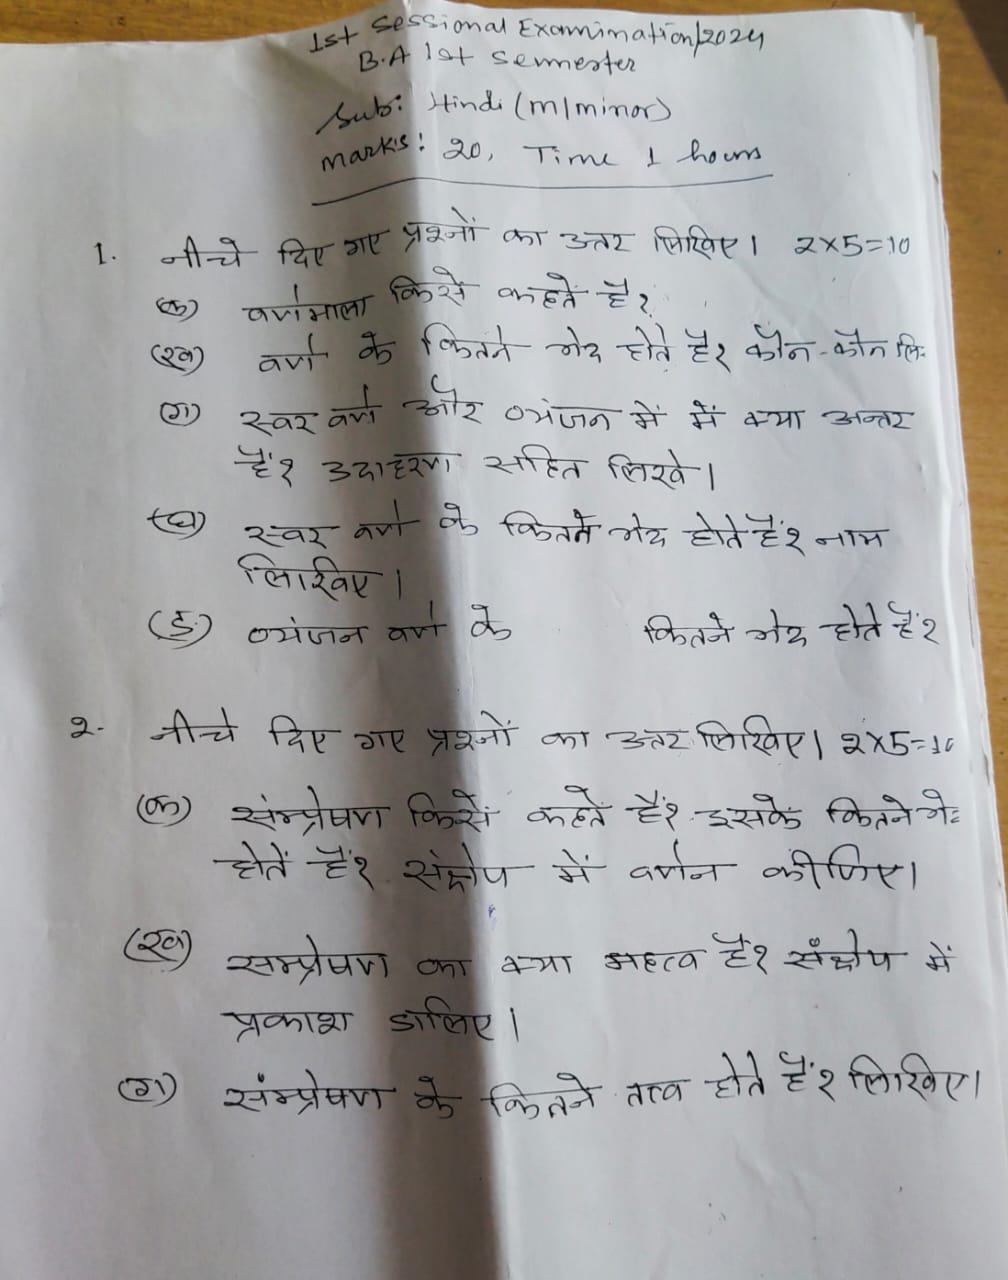 1st Sessional Examination/2024
B.A 1st semester
Sub: Hindi (m/minor)
marks: 20, Time 1 hours
1. नीचे दिए गए प्रश्नों का उत्तर लिखिए। 2x5=10
(क) वर्णमाला किसे कहतें है?
(ख) वर्ण के कितने भेद होते है? कौन-कौन लि
(ग) स्वर वर्ण और व्यंजन में में क्या अन्तर
हैं? उदाहरण सहित लिखे।
(घ) स्वर वर्ण के कितने भेद होते हैं? नाम
लिखिए।
(ङ) व्यंजन वर्ण के कितने भेद होते हैं?
२. नीचे दिए गए प्रश्नों का उत्तर लिखिए। 2x5=10
(क) संम्प्रेषण किसें कहतें हैं? इसकें कितने भे
होतें हैं? संक्षेप में वर्णन कीजिए।
(ख) सम्प्रेषण का क्या महत्व हैं? संक्षेप में
प्रकाश डालिए।
(ग) संम्प्रेषण के कितने तत्व होते हैं? लिखिए।